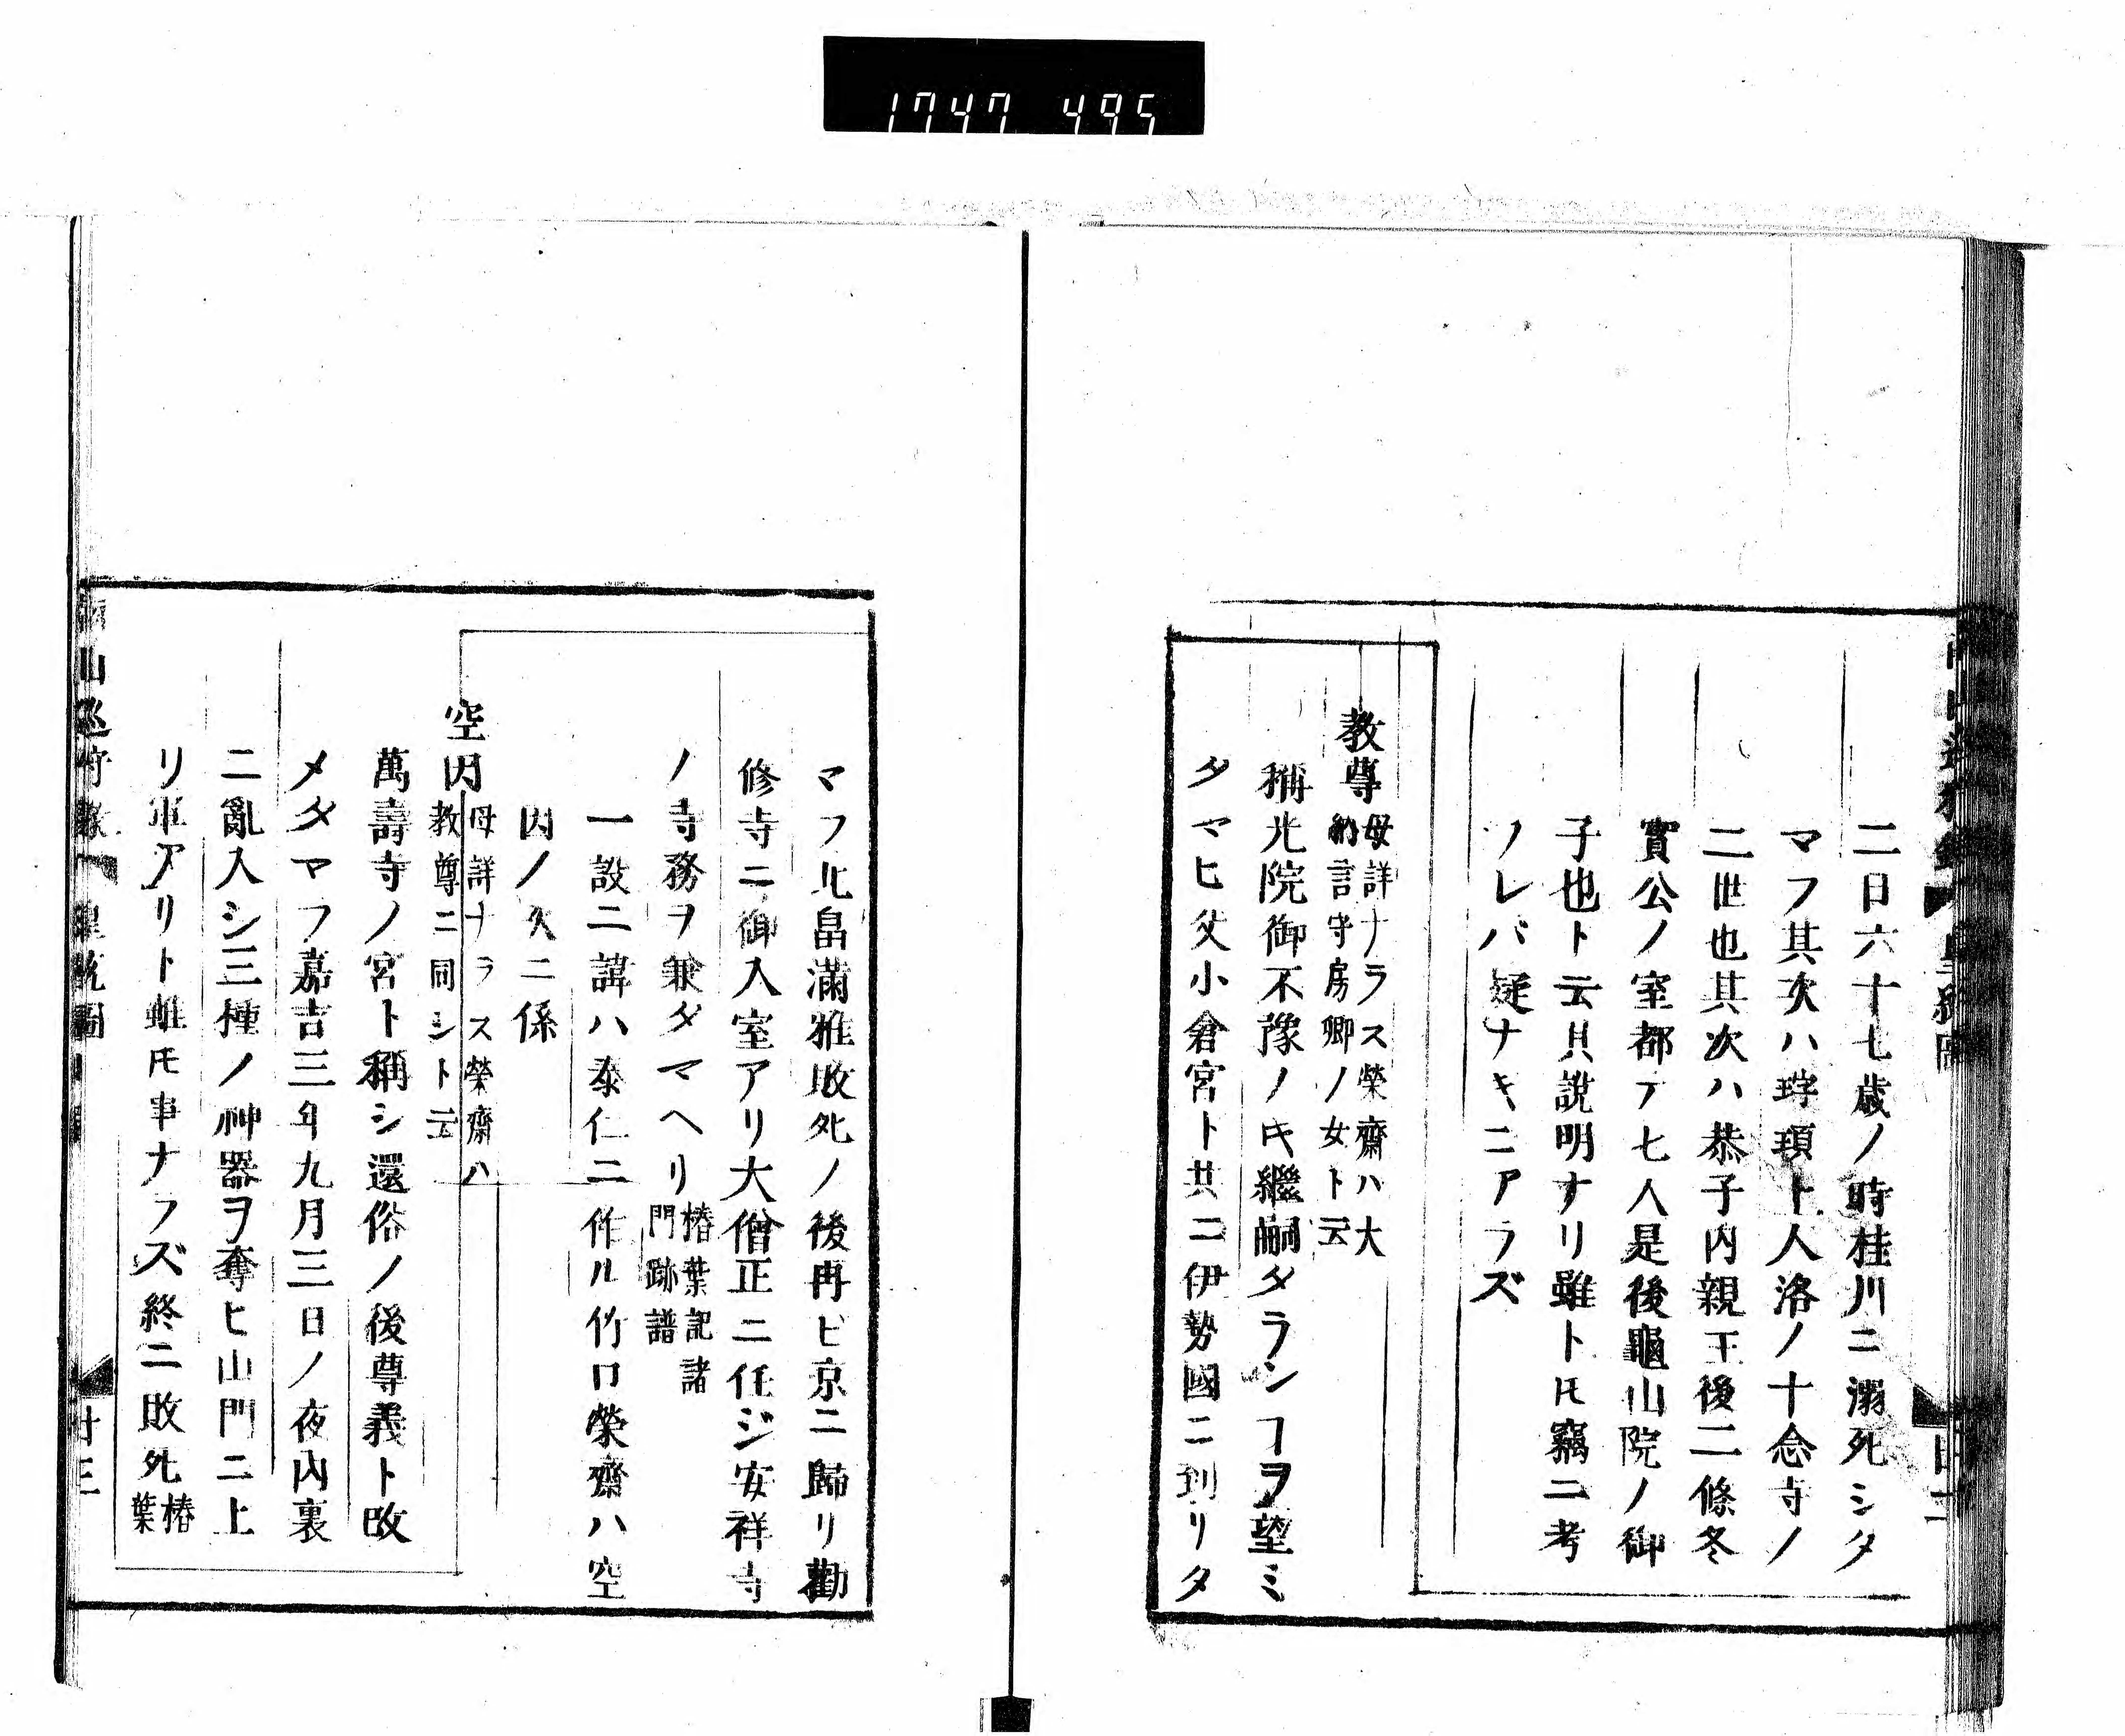 1747 495
二日六十七歳ノ時桂川ニ溺死シタ
マフ其次ハ玶頊ト人洛ノ十念寺ノ
二世也其次ハ恭子内親王後二條冬
實公ノ室都テ七人是後龜山院ノ御
子也ト云其説明ナリ雖トモ竊ニ考
ソレバ疑ナキニアラズ
教尊
母詳ナラス榮齋ハ大
納言守房卿ノ女ト云
稱光院御不豫ノ㐧繼嗣タランヿヲ望ミ
タマヒ父小倉宮ト共ニ伊勢國ニ到リタ
マフ北畠滿雅敗死ノ後再ビ京ニ歸リ勸
修寺ニ御入室アリ大僧正ニ任ジ安祥寺
ノ寺務ヲ兼タマヘリ
椿葉記諸
門跡譜
一説ニ諱ハ泰仁ニ作ル竹口榮齋ハ空
因ノ久ニ係
空因
母詳ナラス榮齋ハ
教尊ニ同シト云
萬壽寺ノ宮ト稱シ還俗ノ後尊義ト改
メタマフ嘉吉三年九月三日ノ夜内裏
ニ亂入シ三種ノ神器ヲ奪ヒ山門ニ上
リ軍アリト雖トモ事ナラズ終ニ敗死
椿
葉
山巡狩録 皇統圖
廿三